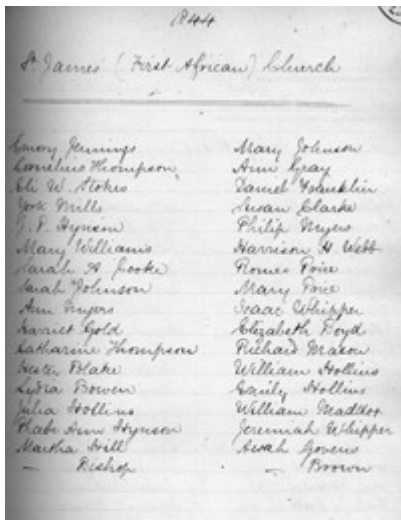 1844
St James (First African) Church
Emory Jennings
Cornelius Thompson
Eli W. Stokes
York Mills
J. P. Hynson
Mary Williams
Sarah A Cooke
Sarah Johnson
Ann Myers
Harriet Gold
Catharine Thompson
Hester Blake
Lydia Bowen
Julia Hollins
Phabe Ann Hynson
Martha Hill
— Bishop
Mary Johnson
Ann Gray
Daniel Franklin
Susan Clarke
Philip Myers
Harrison H Webb
Romeo Price
Mary Price
Isaac Whipper
Elizabeth Boyd
Richard Mason
William Hollins
Emily Hollins
William Maddox
Jeremiah Whipper
Govens
— Brown